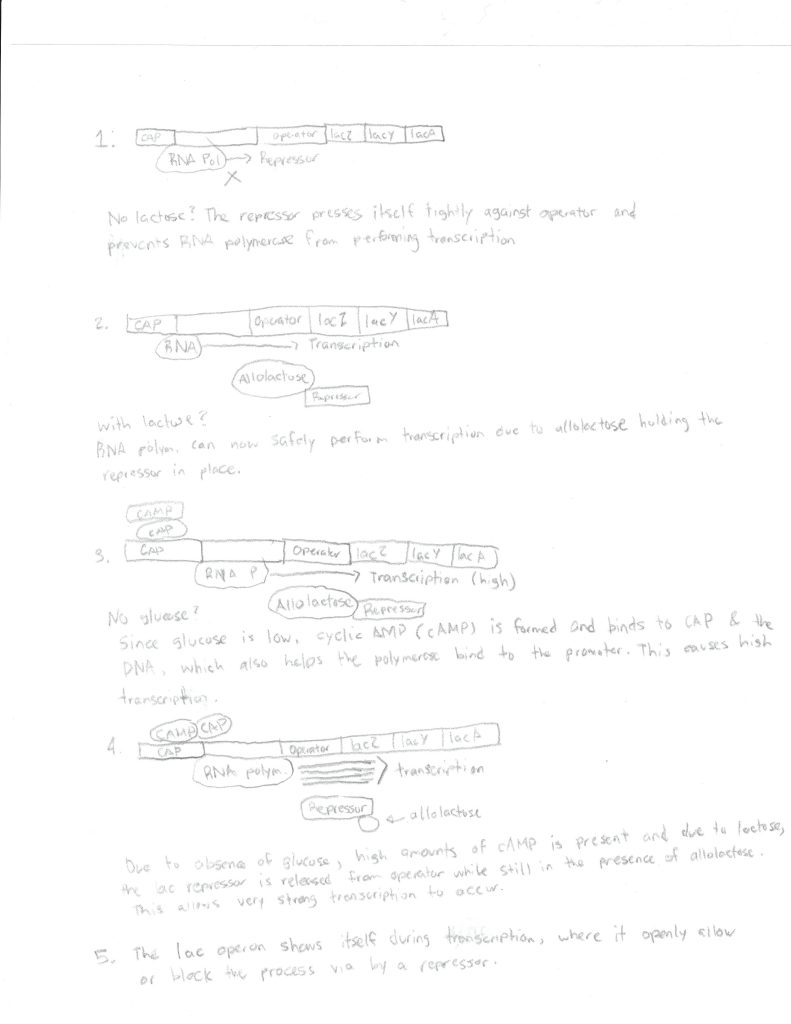 1. CAP Operator lacZ lacY lacA
RNA Pol → Repressor
X
No lactose? The repressor presses itself tightly against operator and
prevents RNA polymerase from performing transcription
2. CAP Operator lacZ lacY lacA
RNA → Transcription
Allolactose
Repressor
With lactose?
RNA polym. can now safely perform transcription due to allolactose holding the
repressor in place.
CAMP
CAP
3. CAP Operator lacZ lacY lacA
RNA P → Transcription (high)
Allolactose Repressor
No glucose?
Since glucose is low, cyclic AMP (cAMP) is formed and binds to CAP & the
DNA, which also helps the polymerase bind to the promoter. This causes high
transcription.
CAMP CAP
4. CAP Operator lacZ lacY lacA
RNA polym. transcription
Repressor
← allolactose
Due to absence of glucose, high amounts of cAMP is present and due to lactose,
the lac repressor is released from operator while still in the presence of allolactose.
This allows very strong transcription to occur.
5. The lac operon shows itself during transcription, where it openly allow
or block the process via by a repressor.